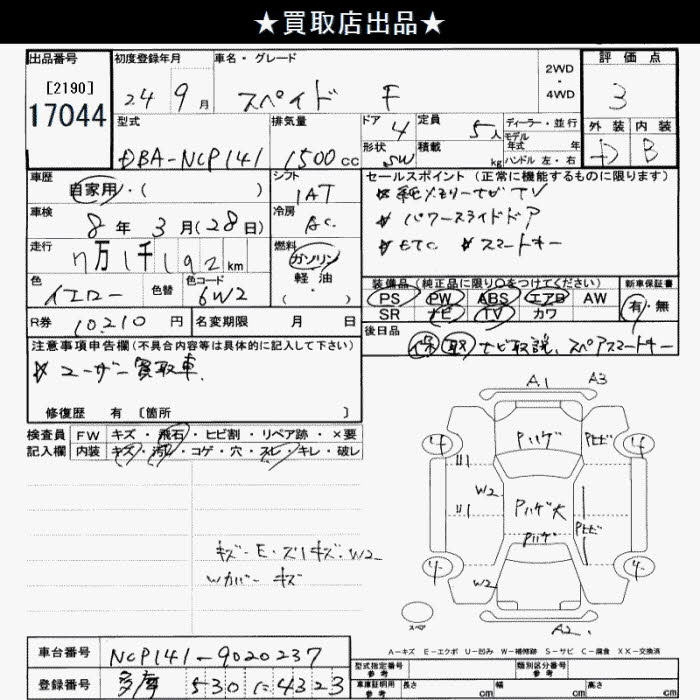 ★買取店出品★
出品番号 初度登録年月 車名・グレード 2WD・4WD 評価点
[2190] 17044
24年 9月 スペイド F 3
型式 排気量 ドア 4 定員 5人 ディーラー・並行 外装 内装
DBA-NCP141 1500cc 形状 SW 積載 kg モデル年式 年 ハンドル 左・右 D B
車歴 シフト セールスポイント (正常に機能するものに限ります)
自家用・( ) IAT ※純メモリーナビTV
車検 冷房 ※パワースライドドア
8年 3月(28日) AC ※ETC ※スマートキー
走行 燃料
7万1千192km ガソリン
軽・油
(・)
色 色替 色コード 装備品 (純正品に限り○をつけてください) 新車保証書
イエロー 6W2 PS PW ABS エアB AW 有・無
SR ナビ TV カワ
R券 10,210円 名変期限 月 日 後日品
保 取 ナビ取説、スペアスマートキー
注意事項申告欄(不具合内容等は具体的に記入して下さい)
※ユーザー買取車
修復歴 有 〔箇所 〕
検査員 FW キズ・飛石・ヒビ割・リペア跡・×要
記入欄 内装 キズ・汚レ・コゲ・穴・スレ・キレ・破レ
A1 A3
Pハゲ Pヒビ
U1 W2
U1 Pハゲ大 Pヒビ
Pハゲ
W2
キズ・E・ズレキズ・W2
Wカバーキズ
スペア A2
A-キズ E-エクボ U-凹み W-補修跡 S-サビ C-腐食 XX-交換済
車台番号 NCP141-9020237
型式指定番号 参考 類別区分番号 参考
登録番号 多摩 530 に 4323
車庫証明用 参考 長さ cm 幅 cm 高さ cm